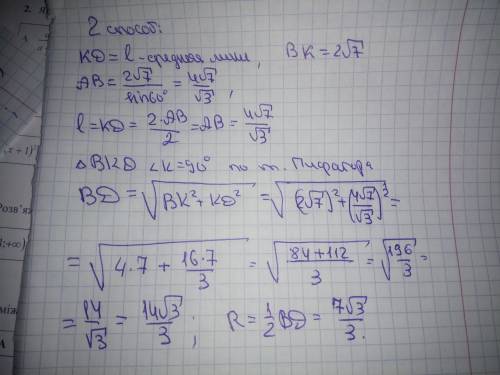 2. Я
2 способ:
KD = l - средняя лин., BK = 2√7
AB = 2√7/sin60° = 4√7/√3,
l = KD = 2·AB/2 = AB = 4√7/√3
△BKD ∠K=90° по т. Пифагора
BD = √(BK²+KD²) = √((2√7)²+(4√7/√3)²) =
= √(4·7 + 16·7/3) = √((84+112)/3) = √(196/3) =
= 14/√3 = 14√3/3 ; R = 1/2 BD = 7√3/3.
x + 1)²
Розв'яз
; +∞)
міжн